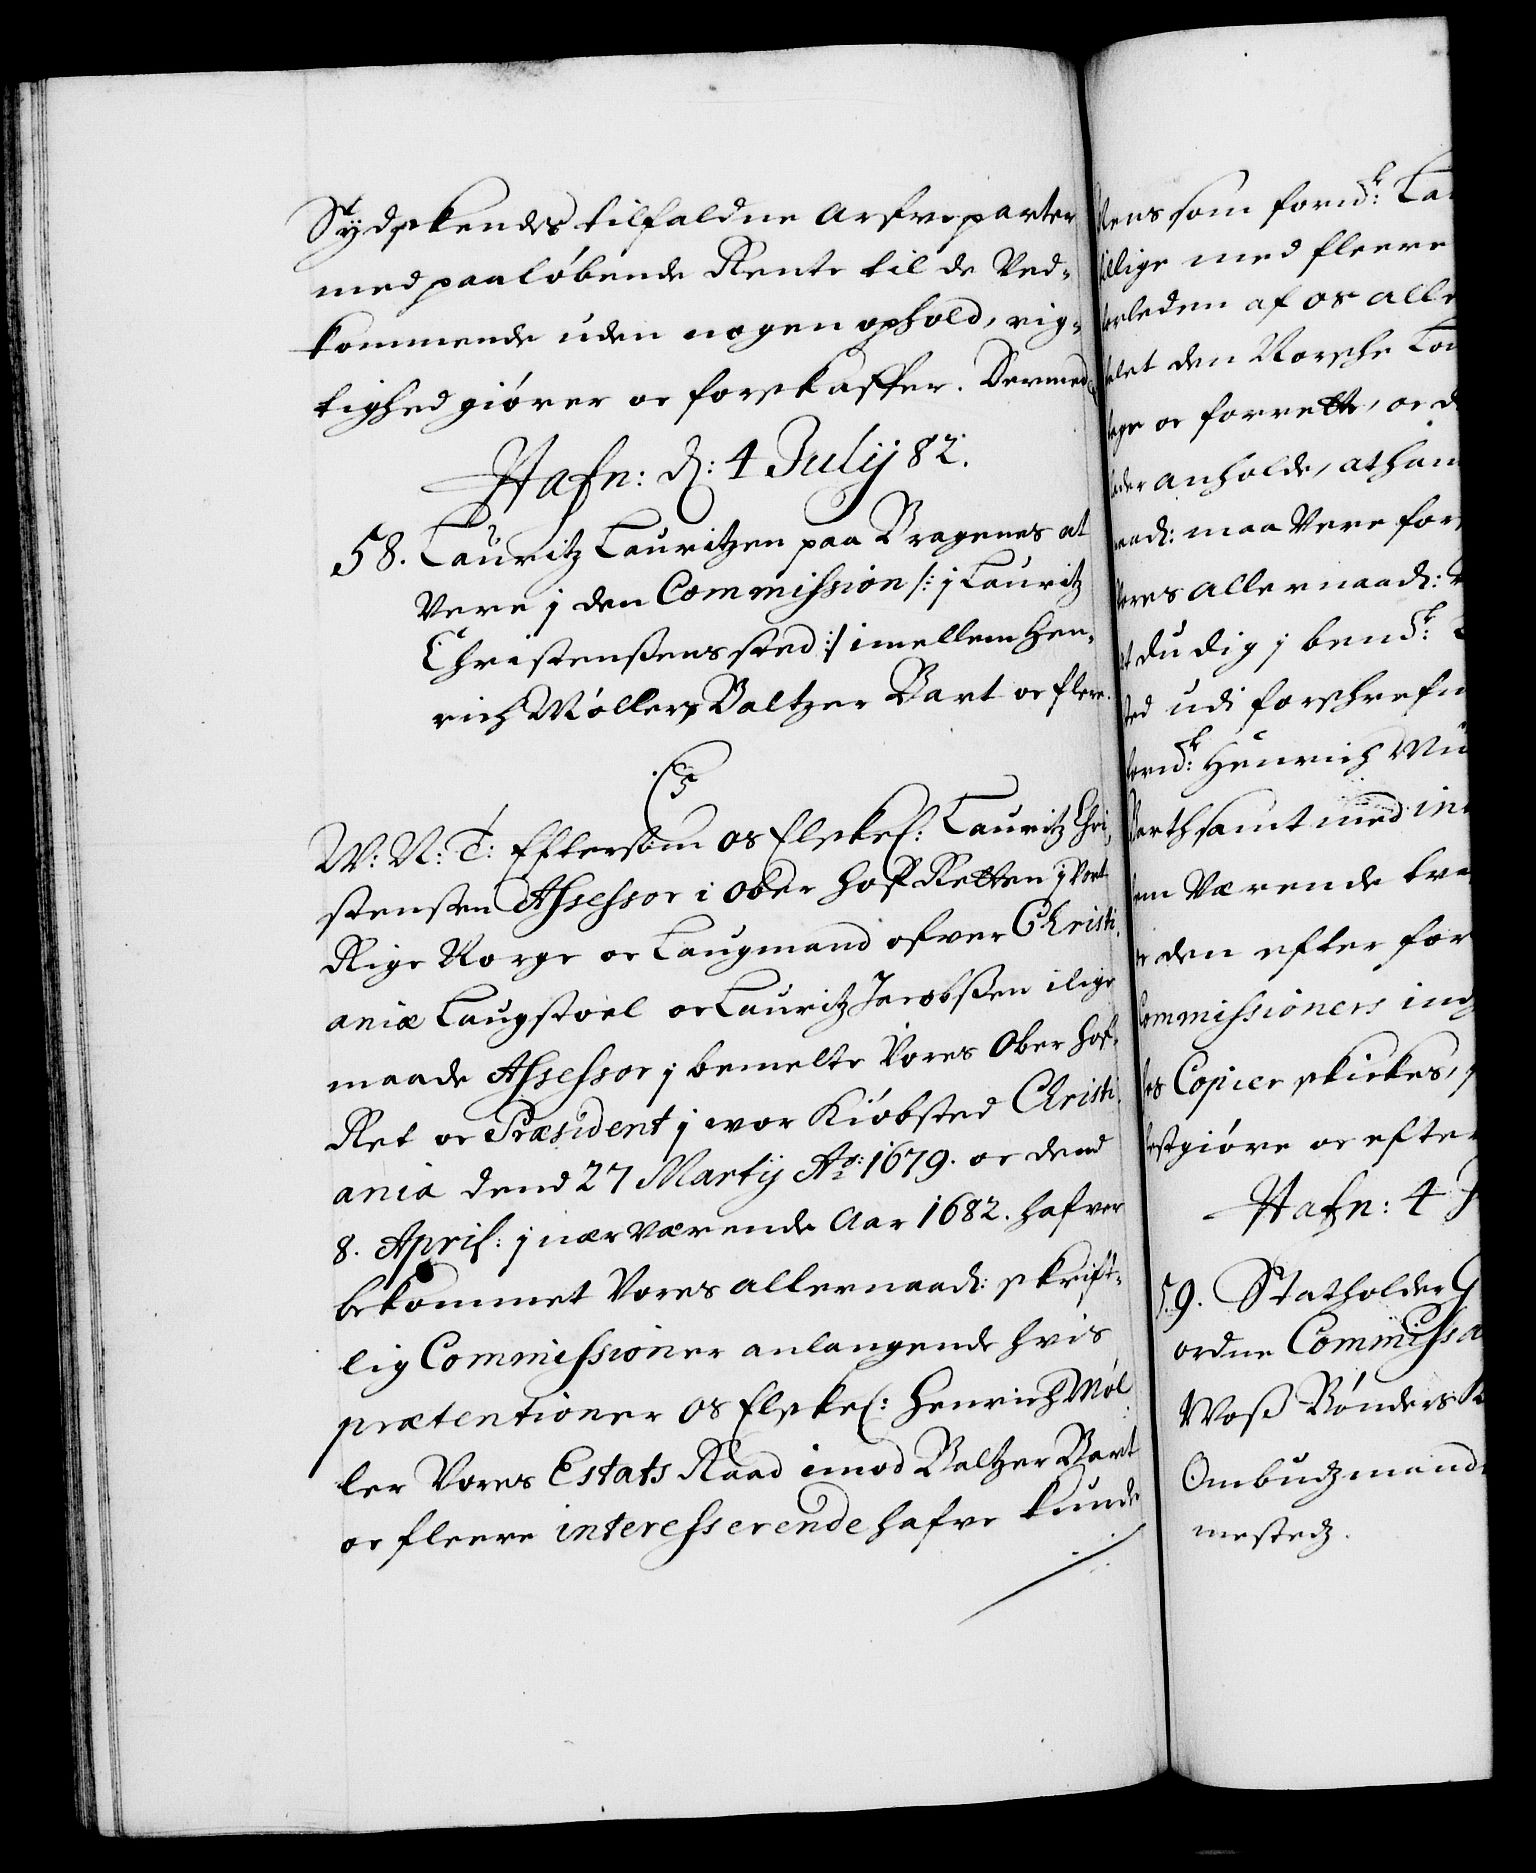 Sydskendes tilfaldne Arfveparter
med paaløbende Rente til de Ved-
kommende uden nogen ophold, rig-
tighed giører oc forskaffer. Dermed
Hafn: d: 4 Julij 82.
58. Lauritz Lauritzen paa Bragenes at
Vere j den Commission /: j Lauritz
Christenßens sted :/ imellem Hen-
rich Møller, Baltzer Bart oc flere.
C5
W: N: T: Eftersom os Elskel: Lauritz Chri-
stenßen Assessor i Ober Hof Retten j Vort
Rige Norge oc Laugmand ofver Christi-
aniæ Laugstoel oc Lauritz Jacobßen ilige
maade Assessor j bemelte Vores Ober Hof-
Ret oc Præsident j vor Kiøbsted Christi-
ania dend 27 Martij Ao: 1679. oc dend
8. April: j nærværende Aar 1682. hafver
bekommet Vores allernaad: skrift-
lig Commissioner anlangende hvis
prætentioner os Elskel: Henrich Møl-
ler Vores Estats Raad imod Baltzer Bart
oc fleere interesserende hafve kunde
som fornd:
med fleere
af os
den Norsche
oc forrette, oc
anholde, at ham
maa Vere
allernaad:
du dig j bend:
udi forschrefn
Henrich
samt med
Værende
den efter for
Commissioners
Copier skickes,
oc efter
Hafn: 4
59. Statholder
ordne
Woß Bønders
Ombudzmand
mestedz.